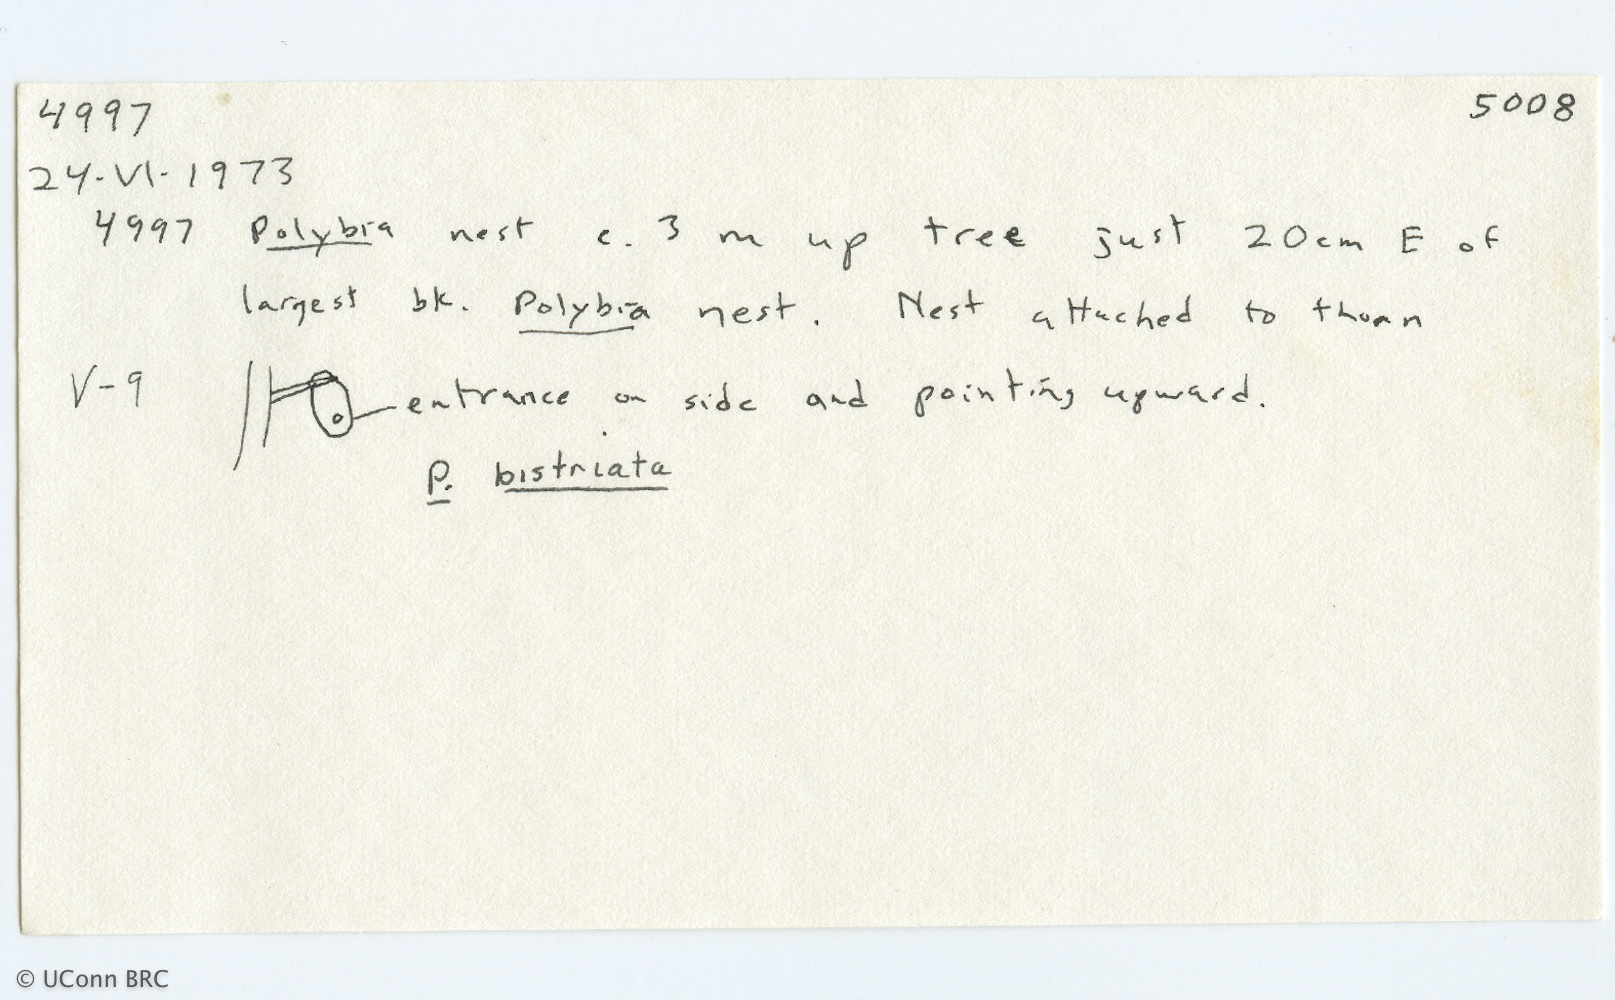 4997 5008
24-VI-1973
4997 Polybia nest c. 3 m up tree just 20cm E of
largest bk. Polybia nest. Nest attached to thorn
V-9 entrance on side and pointing upward.
P. bistriata
© UConn BRC